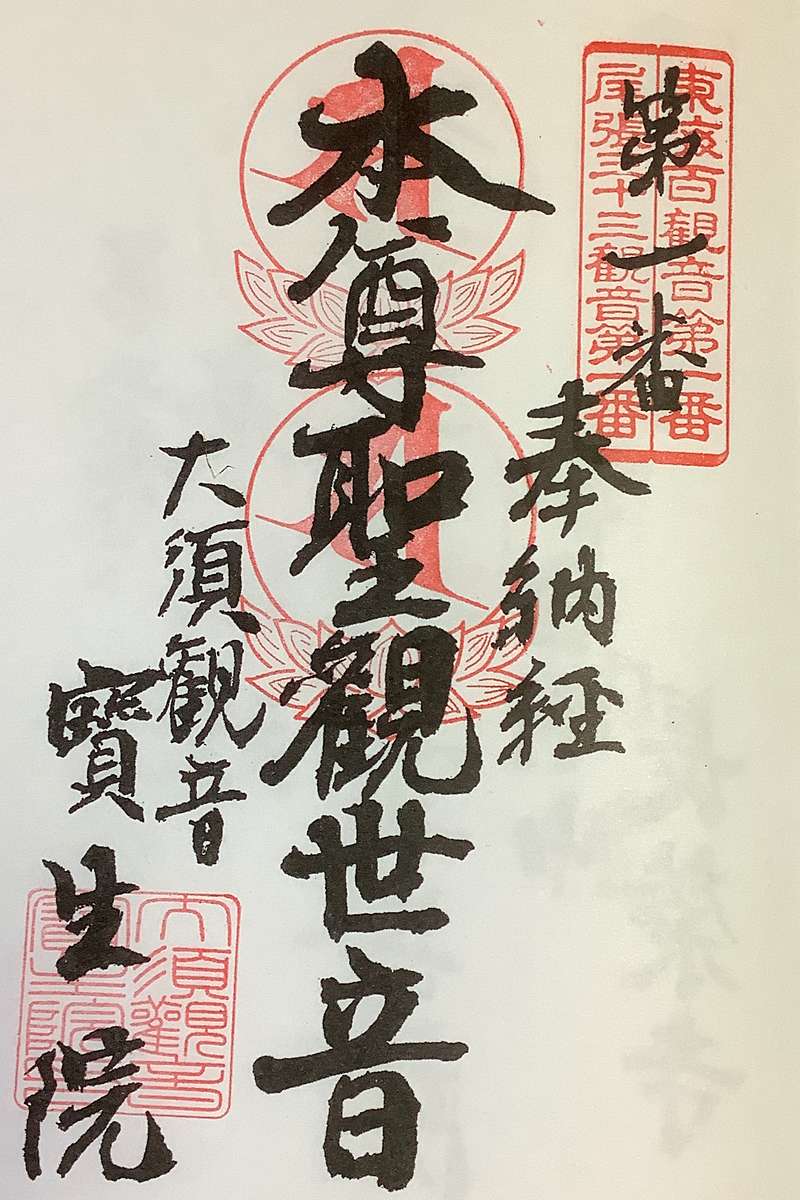 東海百観音第一番
尾張三十三観音第一番
第一番
奉納経
本尊聖観世音
大須観音
寶生院
大須觀音
寶生院